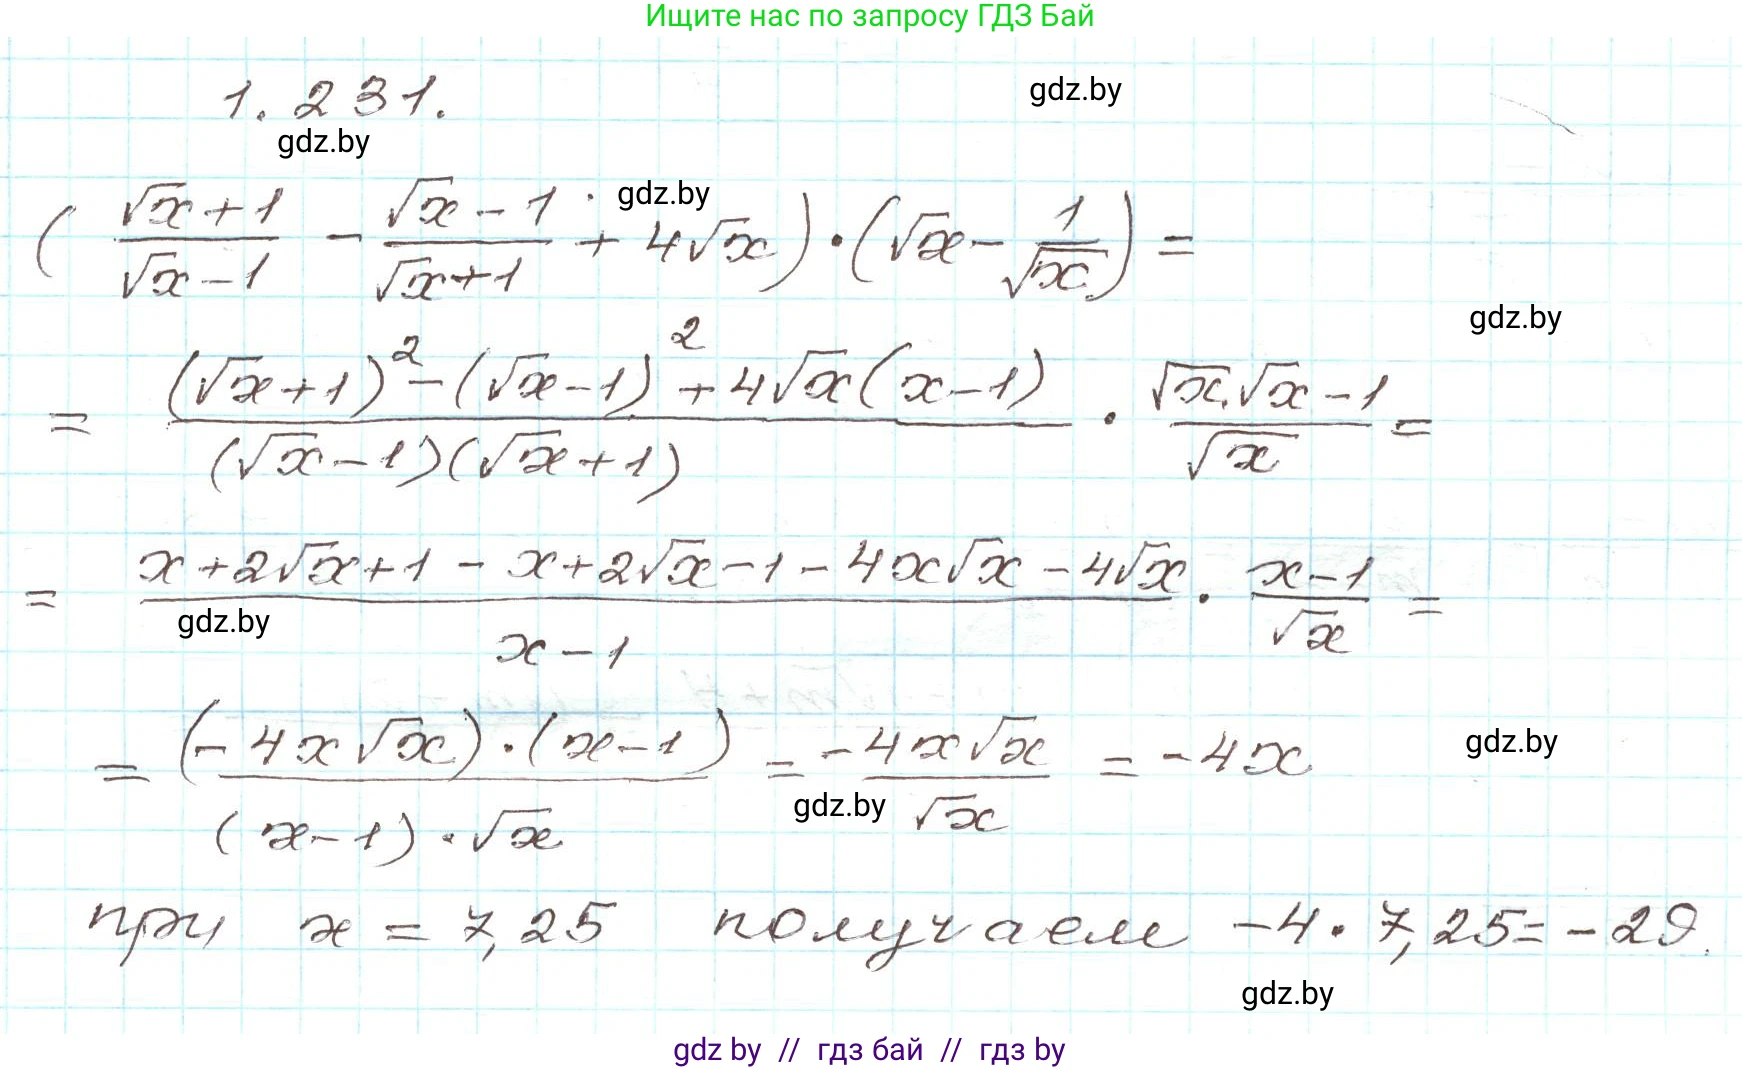 Ищите нас по запросу ГДЗ Бай
1.231.
gdz.by
gdz.by
gdz.by
( (√x+1)/(√x−1) − (√x−1)/(√x+1) + 4√x) · (√x − 1/√x) =
gdz.by
= ((√x+1)² − (√x−1)² + 4√x(x−1))/((√x−1)(√x+1)) · (√x·√x−1)/√x =
= (x+2√x+1 − x+2√x−1−4x√x−4√x)/(x−1) · (x−1)/√x =
gdz.by
= ((−4x√x)·(x−1))/((x−1)·√x) = (−4x√x)/√x = −4x
gdz.by
gdz.by
при x = 7,25 получаем −4 · 7,25 = −29.
gdz.by
gdz by // гдз бай // гдз by